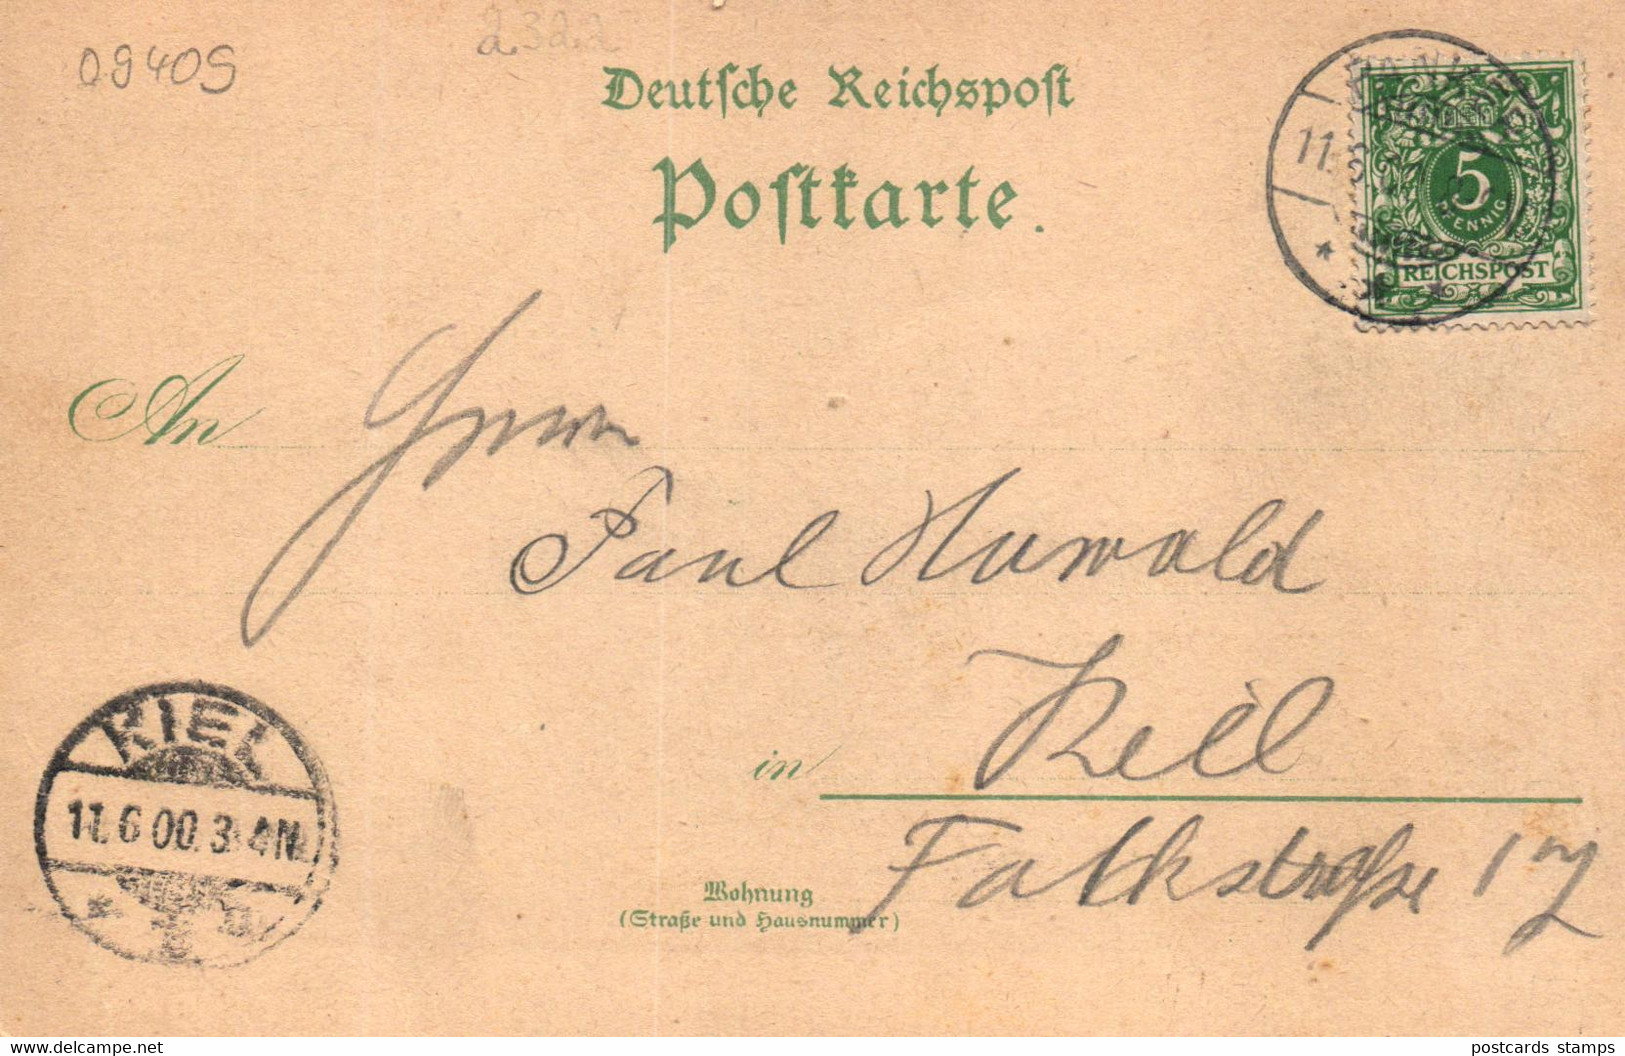 09405
2322
Deutsche Reichspost
Postkarte.
5
PFENNIG
REICHSPOST
An Herrn
Paul Huwald
in Kiel
Wohnung
(Straße und Hausnummer)
Falkstraße 17
KIEL
11.6.00.3-4N.
postcards stamps
www.delcampe.net